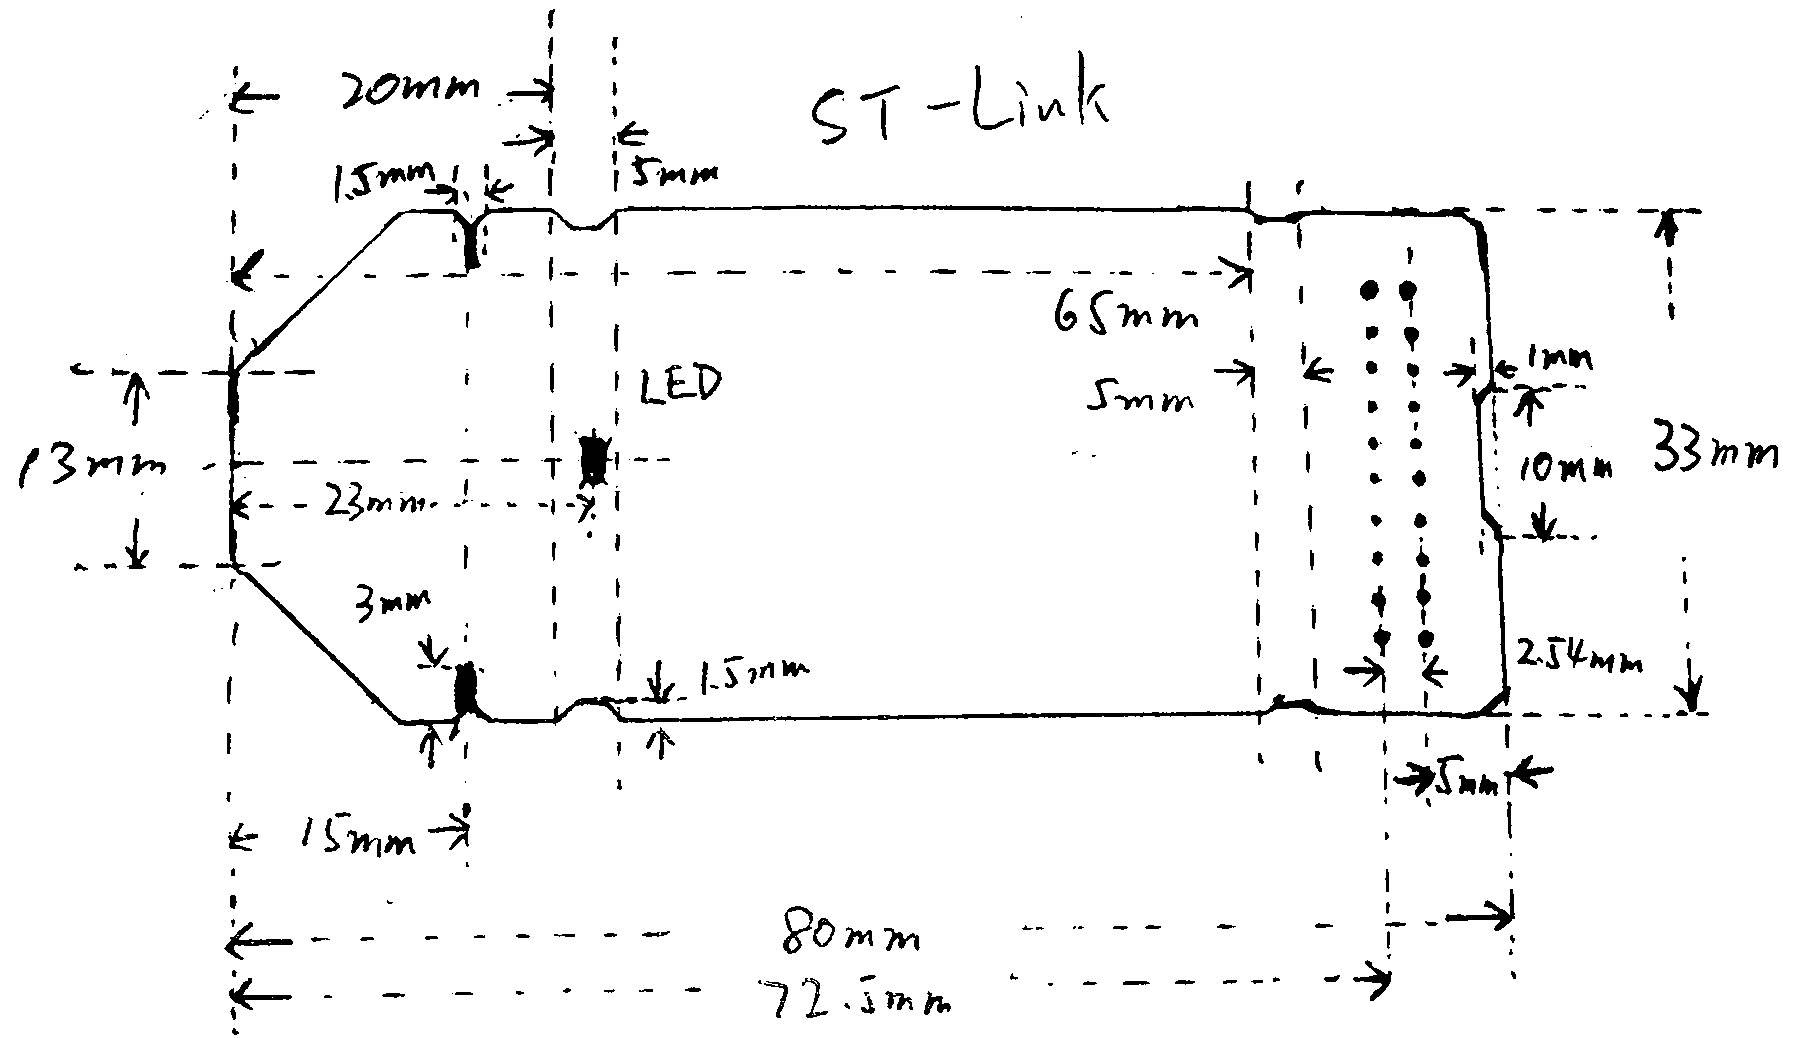 20mm
ST-Link
1.5mm
5mm
65mm
1mm
LED
5mm
13mm
33mm
10mm
23mm
3mm
2.54mm
1.5mm
5mm
15mm
80mm
72.5mm